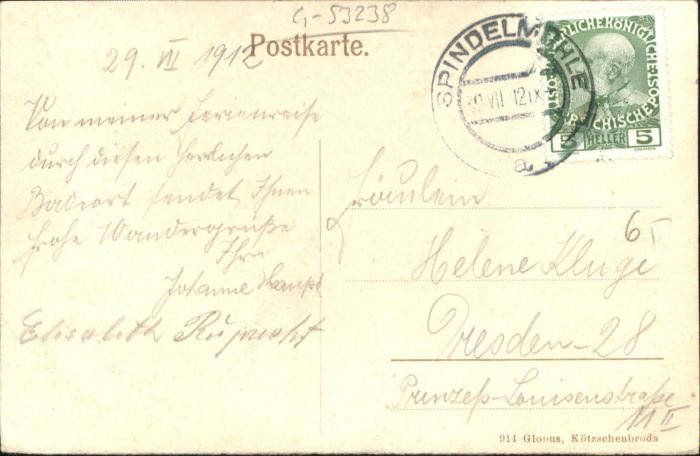 C,-53238
29. VII 1912
Postkarte.
SPINDELMÜHLE
VII 12 IX
a
KAISERLICHE KÖNIGLICHE
ÖSTERREICHISCHE POST
5 HELLER 5
Von meiner Ferienreise
durch diesen herrlichen
Badeort sendet Ihnen
frohe Wandergrüße
Ihre
Johanne
Elisabeth Ruprecht
Fräulein
6 I
Helene Kluge
Dresden-28
Prinzeß-Louisenstraße
11 II
914 Globus, Kötzschenbroda